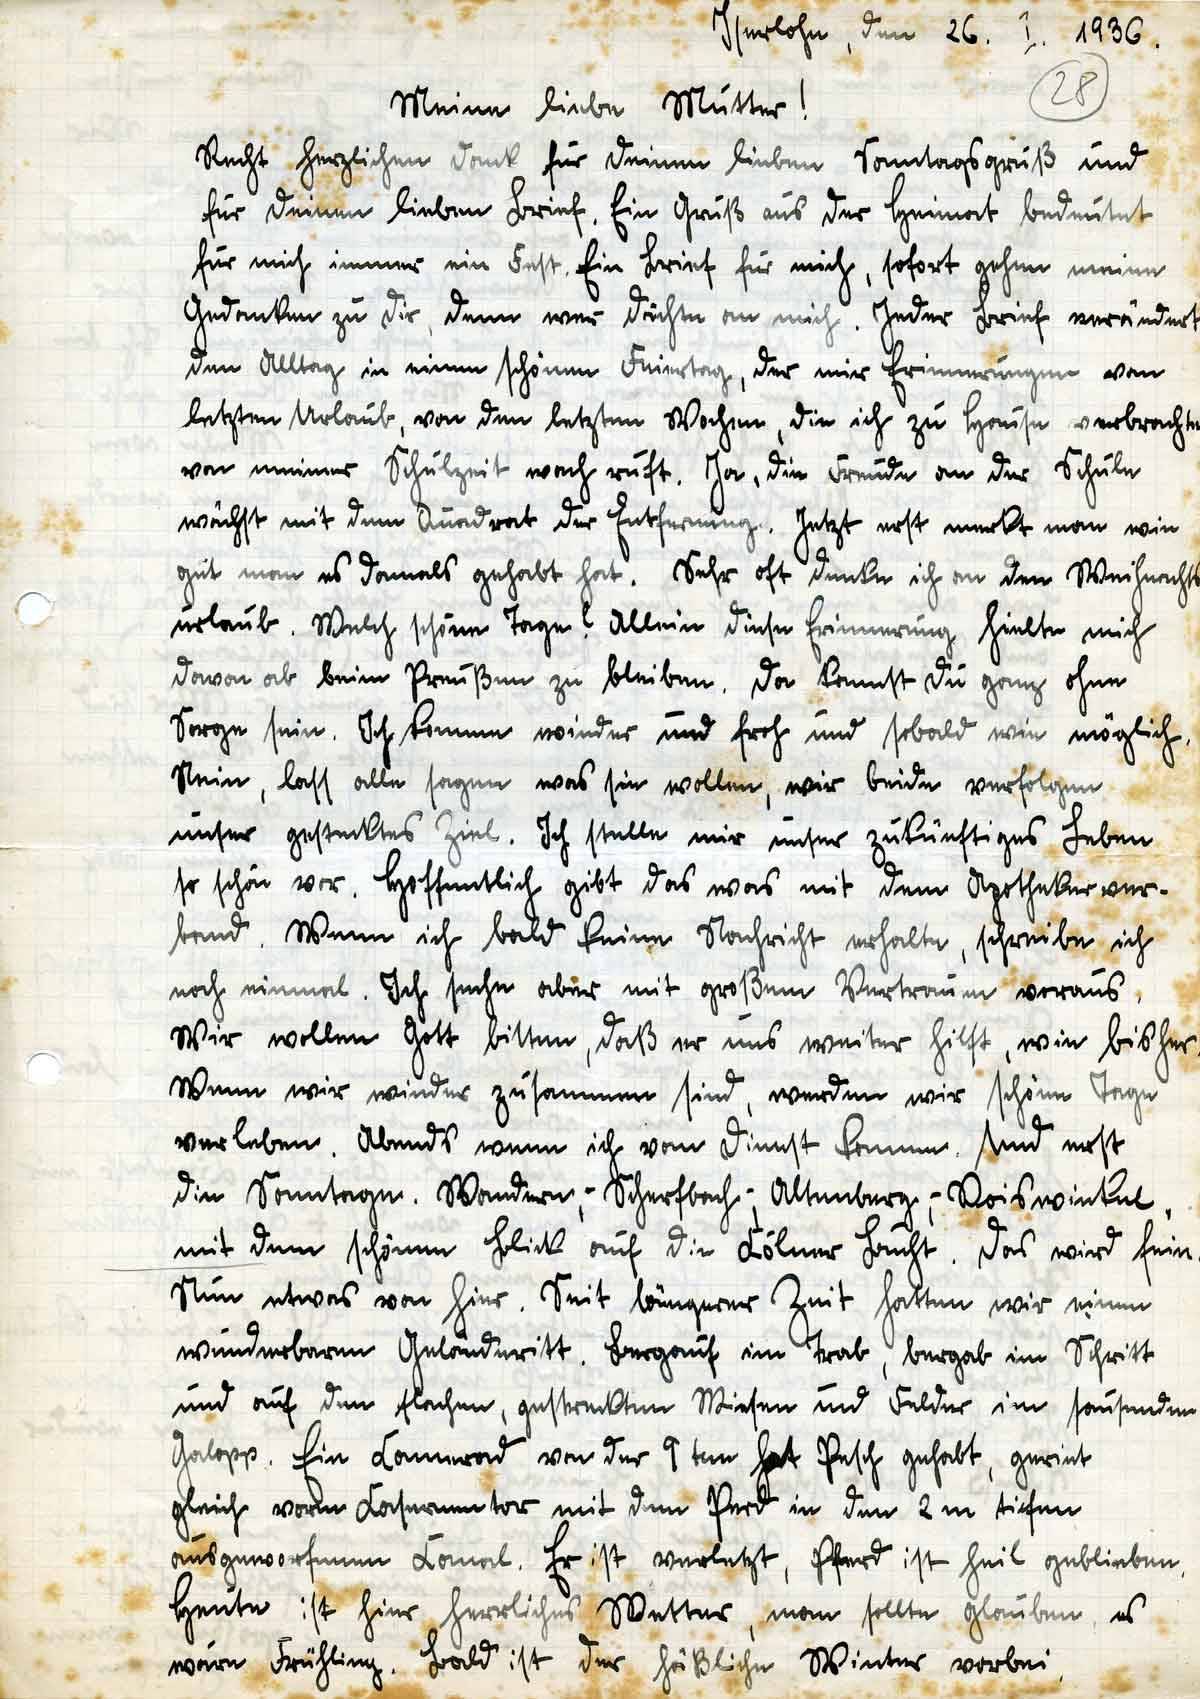 Iserlohn, den 26. I. 1936.
28
Meine liebe Mutter!
Recht herzlichen Dank für Deinen lieben Sonntagsgruß und
für Deinen lieben Brief. Ein Gruß aus der Heimat bedeutet
für mich immer ein Fest. Ein Brief für mich, sofort gehen meine
Gedanken zu Dir, denn wer dächte an mich. Jeder Brief verändert
den Alltag in einen schönen Feiertag, der mir Erinnerungen von
letzten Urlaub, von den letzten Wochen, die ich zu Hause verbrachte
von meiner Schulzeit wach ruft. Ja, die Freude an der Schule
wächst mit dem Quadrat der Entfernung. Jetzt erst merkt man wie
gut man es damals gehabt hat. Sehr oft denke ich an den Weihnachts
urlaub. Welch schöne Tage! Allein diese Erinnerung hielte mich
davon ab beim Preußen zu bleiben. Da kannst Du ganz ohne
Sorge sein. Ich komme wieder und froh und sobald wie möglich.
Nein, lass alle sagen was sie wollen, wir beide verfolgen
unser gestecktes Ziel. Ich stelle mir unser zukünftiges Leben
so schön vor. Hoffentlich gibt das was mit dem Apothekerver-
band. Wenn ich bald keine Nachricht erhalte, schreibe ich
noch einmal. Ich sehe aber mit großem Vertrauen voraus.
Wir wollen Gott bitten, daß er uns weiter hilft, wie bisher.
Wenn wir wieder zusammen sind, werden wir schöne Tage
verleben. Abends wenn ich vom Dienst komme. Und erst
die Sonntage. Wandern,- Scherfbach-, Altenberg,- Voiswinkel,
mit dem schönen Blick auf die Cölner Bucht. Das wird fein.
Nun etwas von hier. Seit längerer Zeit hatten wir einen
wunderbaren Geländeritt. Bergauf im Trab, bergab im Schritt
und auf den flachen, gestreckten Wiesen und Felder im sausenden
Galopp. Ein Camerad von der 9 ten hat Pesch gehabt, geriet
gleich vorm Casernentor mit dem Perd in den 2 m tiefen
ausgeworfenen Canal. Er ist verletzt, Pferd ist heil geblieben.
Heute ist hier herrliches Wetter, man sollte glauben es
wäre Frühling. Bald ist der häßliche Winter vorbei.